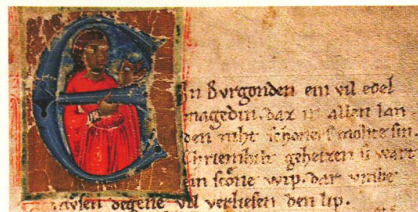 Ein Burgonden ein vil edel
magedin. daz in allen lan
den niht schoners mohte sin.
Chriemhilt geheizen si wart
ein scone wip. dar vmbe
degene vil verliesen den lip.